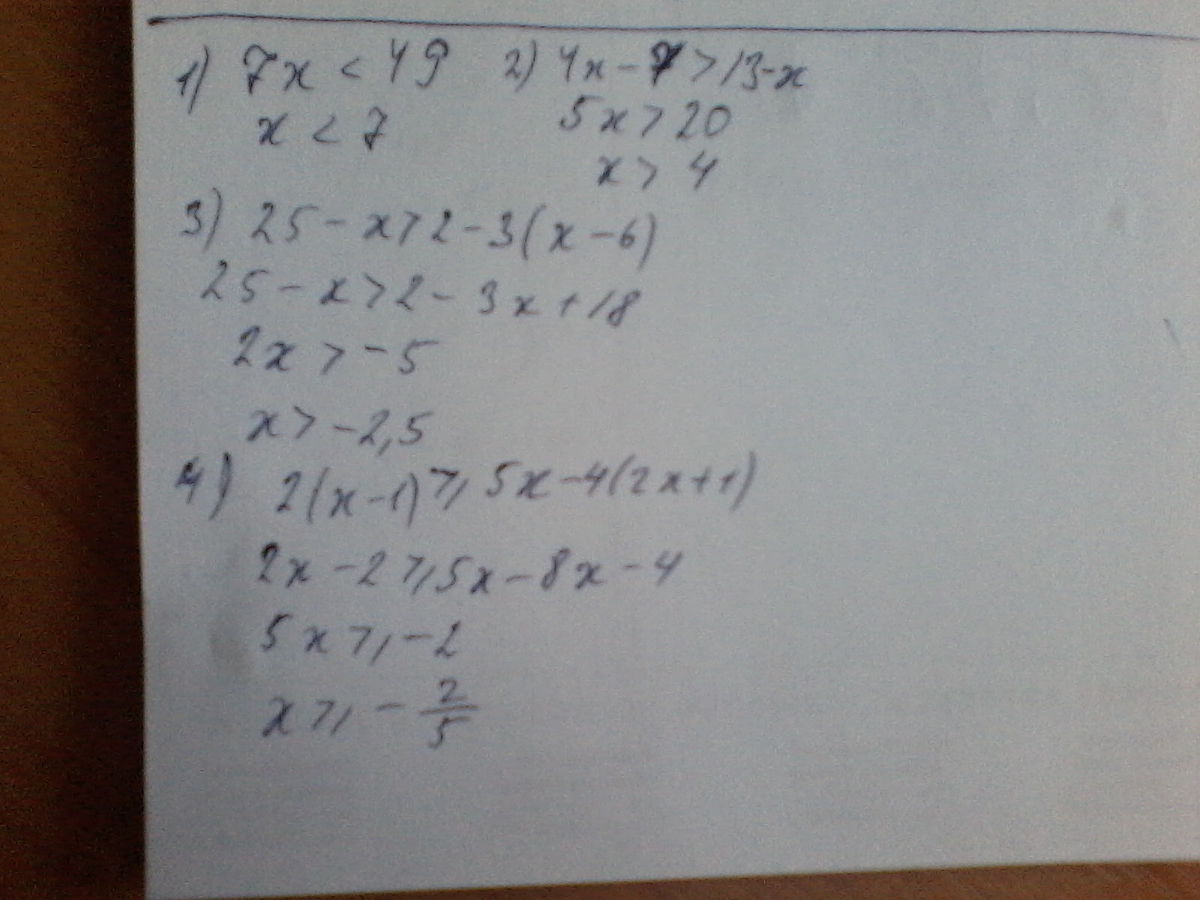 1) 7x < 49 2) 4x - 7 > 13 - x
x < 7 5x > 20
x > 4
3) 25 - x > 2 - 3(x - 6)
25 - x > 2 - 3x + 18
2x > -5
x > -2,5
4) 2(x - 1) ⩾ 5x - 4(2x + 1)
2x - 2 ⩾ 5x - 8x - 4
5x ⩾ -2
x ⩾ - 2/5